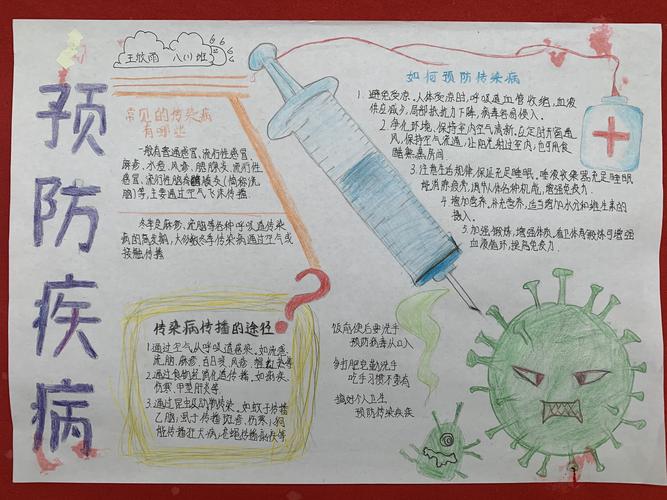 预防疾病
王欣雨 八(1)班
常见的传染病
有哪些
一般有普通感冒、流行性感冒、
麻疹、水痘、风疹、腮腺炎、流行性
感冒、流行性脑脊髓膜炎(简称流
脑)等,主要通过空气飞沫传播
冬季是麻疹、流脑等各种呼吸道传染
病的高发期,大多数冬季传染病通过空气或
接触传播
传染病传播的途径
1.通过空气从呼吸道感染。如流感、
流脑、麻疹、百日咳、风疹、等
2.通过食物经消化道传播。如
伤寒、甲型肝炎等
3.通过昆虫及动物传染。如蚊子传播
乙脑,虱子传播斑疹、伤寒,狗
能传播狂犬病,老鼠传播等
如何预防传染病
1.避免受凉。人体受凉时,呼吸道血管收缩,血液
供应减少,局部抵抗力下降,病毒容易侵入。
2.净化环境,保持室内空气清新,在定时开窗通
风,保持空气流通,让阳光射进室内,也可用食
醋熏蒸房间
3.注意生活规律,保证充足睡眠,充足睡眠
能消除疲劳,调节人体各种机能,增强免疫力.
4.增加营养,补充营养,适当增加水分和维生素的
摄入。
5.加强锻炼,增强体质,锻炼可增强
血液循环,提高免疫力.
饭前便后要洗手
预防病毒从口入
打肥皂勤洗手
吃手习惯不要有
搞好个人卫生
预防传染疾疾